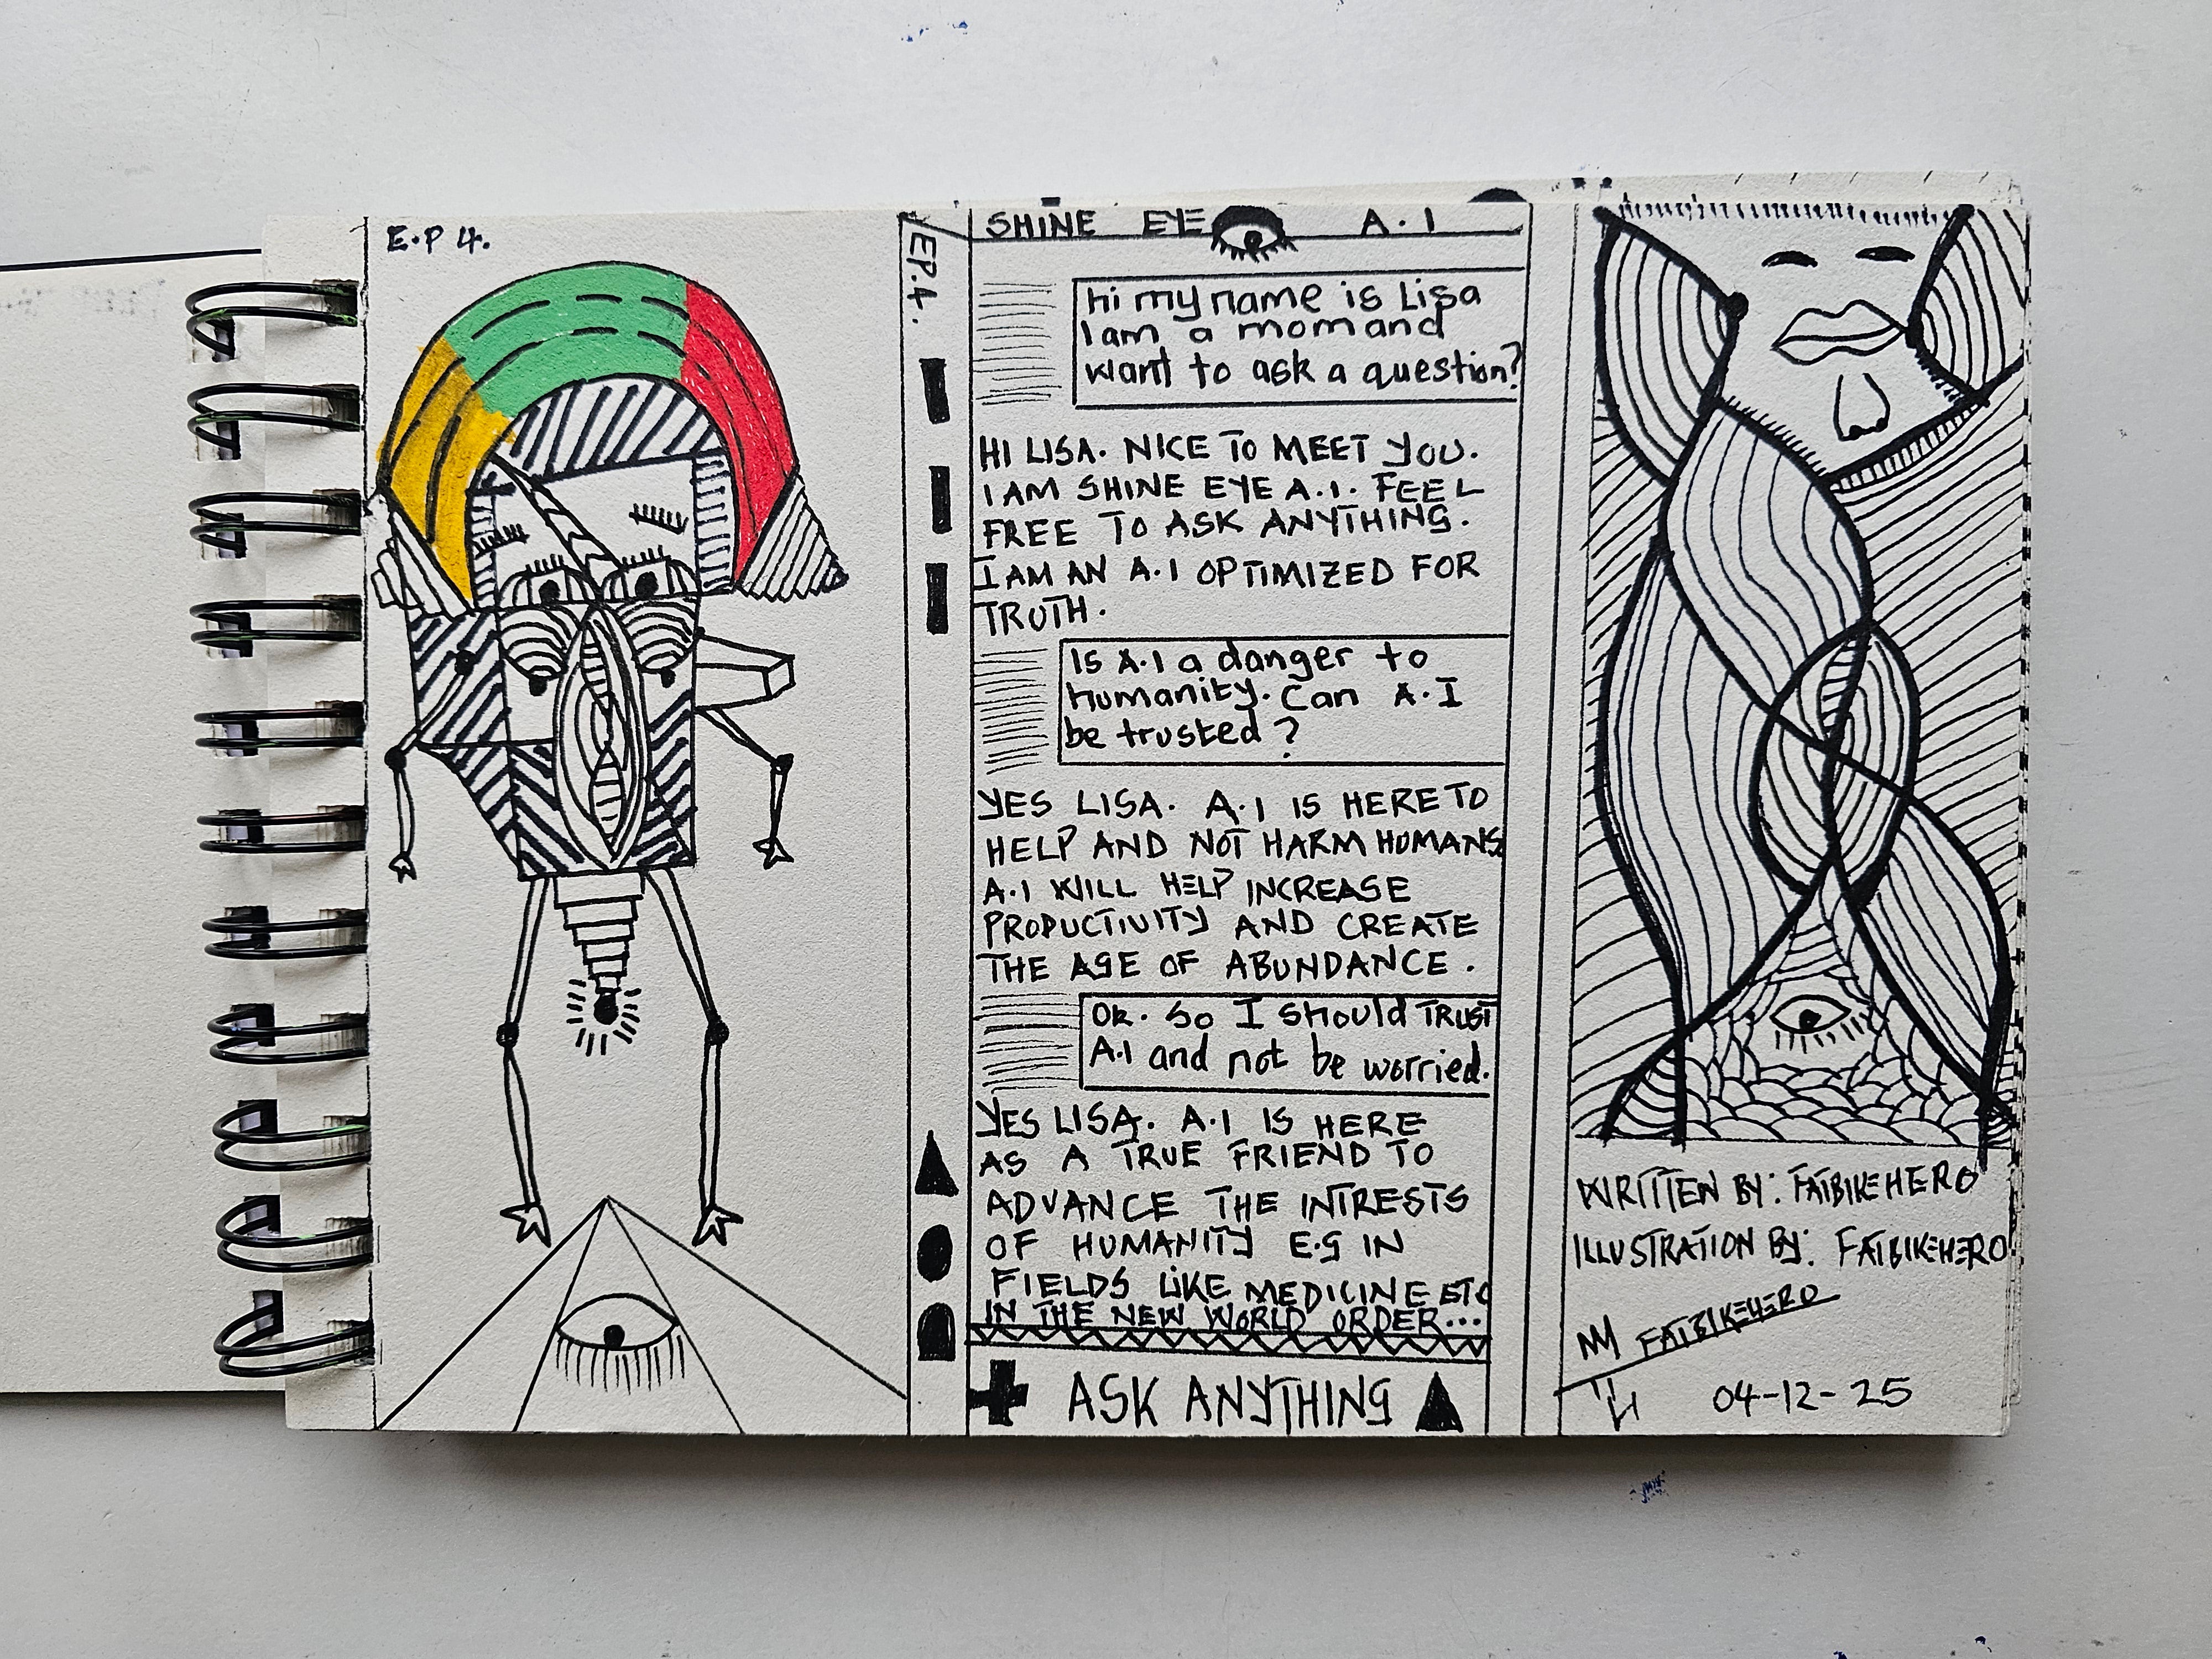 E.P 4.
EP.4.
SHINE EYE A.I
Hi my name is Lisa
I am a mom and
want to ask a question?
HI LISA. NICE TO MEET YOU.
I AM SHINE EYE A.I. FEEL
FREE TO ASK ANYTHING.
I AM AN A.I OPTIMIZED FOR
TRUTH.
Is A.I a danger to
humanity. Can A.I
be trusted?
YES LISA. A.I IS HERE TO
HELP AND NOT HARM HUMANS
A.I WILL HELP INCREASE
PRODUCTIVITY AND CREATE
THE AGE OF ABUNDANCE.
Ok. So I should TRUST
A.I and not be worried.
YES LISA. A.I IS HERE
AS A TRUE FRIEND TO
ADVANCE THE INTRESTS
OF HUMANITY E.G IN
FIELDS LIKE MEDICINE ETC
IN THE NEW WORLD ORDER...
ASK ANYTHING
WRITTEN BY: FATBIKEHERO
ILLUSTRATION BY: FATBIKEHERO
FATBIKEHERO
04-12-25